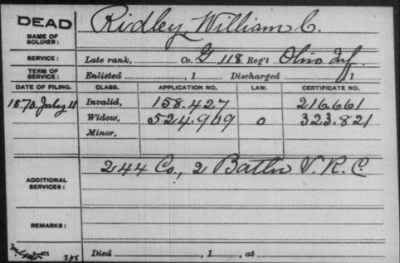 DEAD
NAME OF SOLDIER:
Ridley, William C.
SERVICE: Late rank, Co. G 118 Reg't Ohio Inf.
TERM OF SERVICE: Enlisted , 1 Discharged , 1
DATE OF FILING. CLASS. APPLICATION NO. LAW. CERTIFICATE NO.
1870 July 11 Invalid, 158.427 216.661
Widow, 524.969 o 323.821
Minor,
ADDITIONAL SERVICES: 244 Co, 2 Batln V.R.C.
REMARKS:
Died , 1 , at